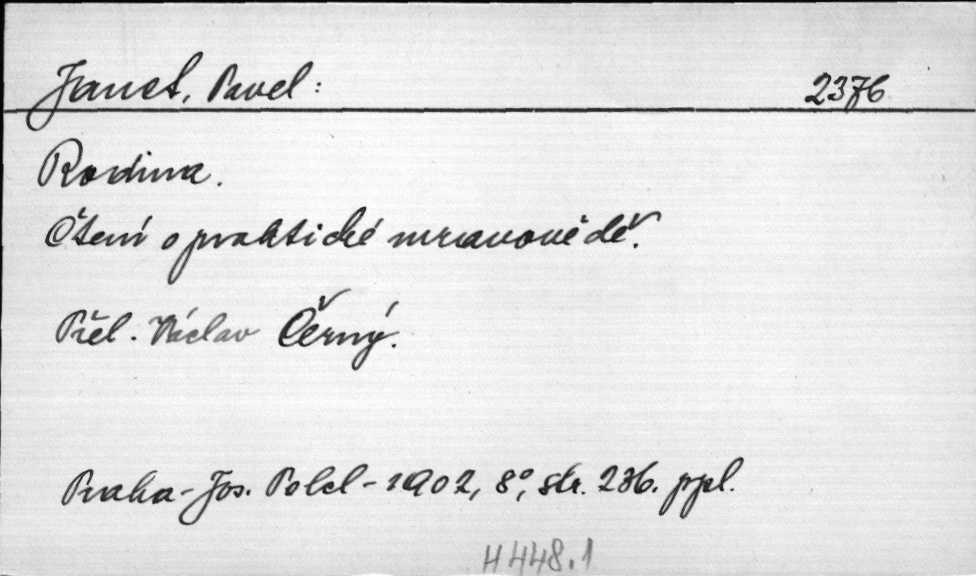 Janet, Pavel: 2376
Rodina.
Čtení o praktické mravovědě.
Přel. Václav Černý.
Praha - Jos. Pelcl - 1902, 8°, str. 236. ppl.
H 448.1